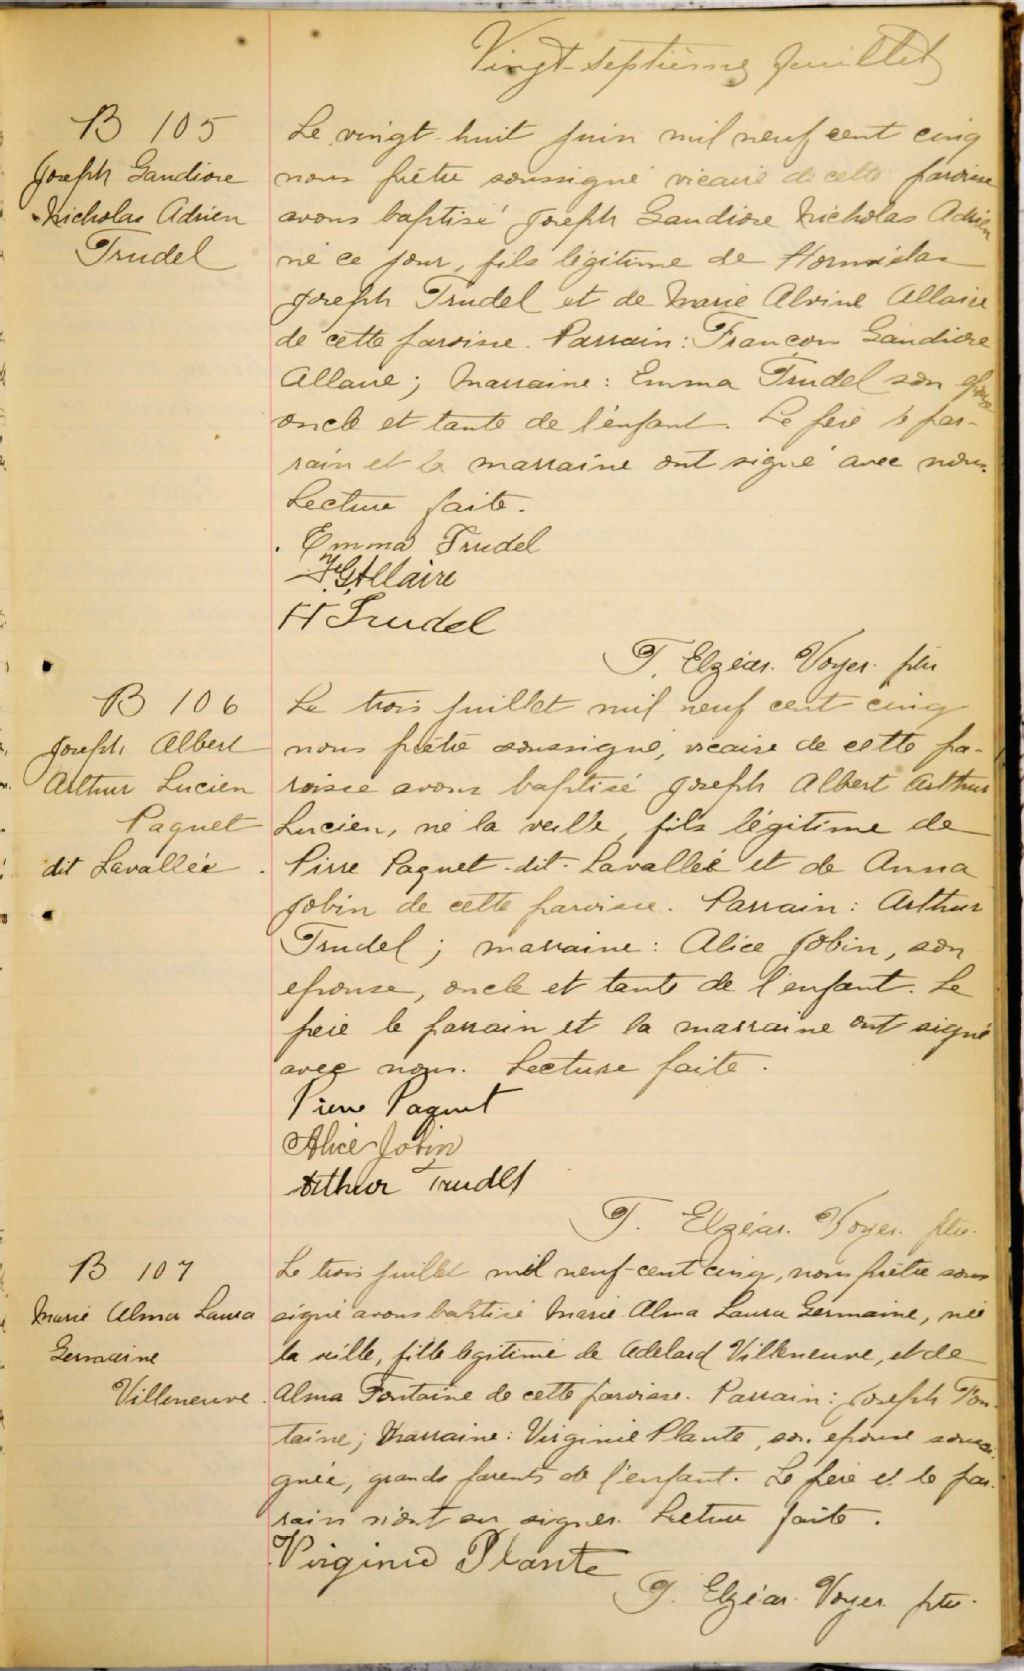 Vingt-septième feuillet
B 105
Joseph Gaudiose
Nicholas Adrien
Trudel
Le vingt-huit juin mil neuf cent cinq
nous prêtre soussigné vicaire de cette paroisse
avons baptisé Joseph Gaudiose Nicholas Adrien
né ce jour, fils légitime de Hormidas
Joseph Trudel et de Marie Alvine Allaire
de cette paroisse. Parrain: François Gaudiose
Allaire; Marraine: Emma Trudel son épouse
oncle et tante de l'enfant. Le père le par-
rain et la marraine ont signé avec nous.
Lecture faite.
Emma Trudel
Allaire
H Trudel
T. Elzéar. Voyer. ptre
B 106
Joseph Albert
Arthur Lucien
Paquet
dit Lavallée.
Le trois juillet mil neuf cent cinq
nous prêtre soussigné, vicaire de cette pa-
roisse avons baptisé Joseph Albert Arthur
Lucien, né la veille, fils légitime de
Pierre Paquet-dit-Lavallée et de Anna
Jobin de cette paroisse. Parrain: Arthur
Trudel; marraine: Alice Jobin, son
epouse, oncle et tante de l'enfant. Le
père le parrain et la marraine ont signé
avec nous. Lecture faite.
Pierre Paquet
Alice Jobin
Arthur Trudel
T. Elzéar. Voyer. ptre.
B 107
Marie Alma Laura
Germaine
Villeneuve.
Le trois juillet mil neuf-cent cinq, nous prêtre sous
signé avons baptisé Marie Alma Laura Germaine, née
la veille, fille légitime de Adelard Villeneuve, et de
Alma Fontaine de cette paroisse. Parrain: Joseph Fon-
taine; Marraine: Virginie Plante, son epouse soussi-
gnée, grands parents de l'enfant. Le père et le par-
rain n'ont su signer. Lecture faite.
Virginie Plante
T. Elzéar. Voyer ptre.